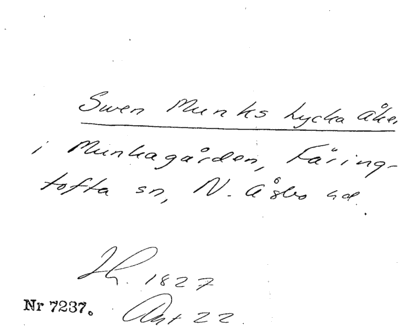 Swen Munks Lycka åker
i Munkagården, Färing-
tofta sn, N. Åsbo hd.
Lh. 1827
Nr 7237. Akt 22.